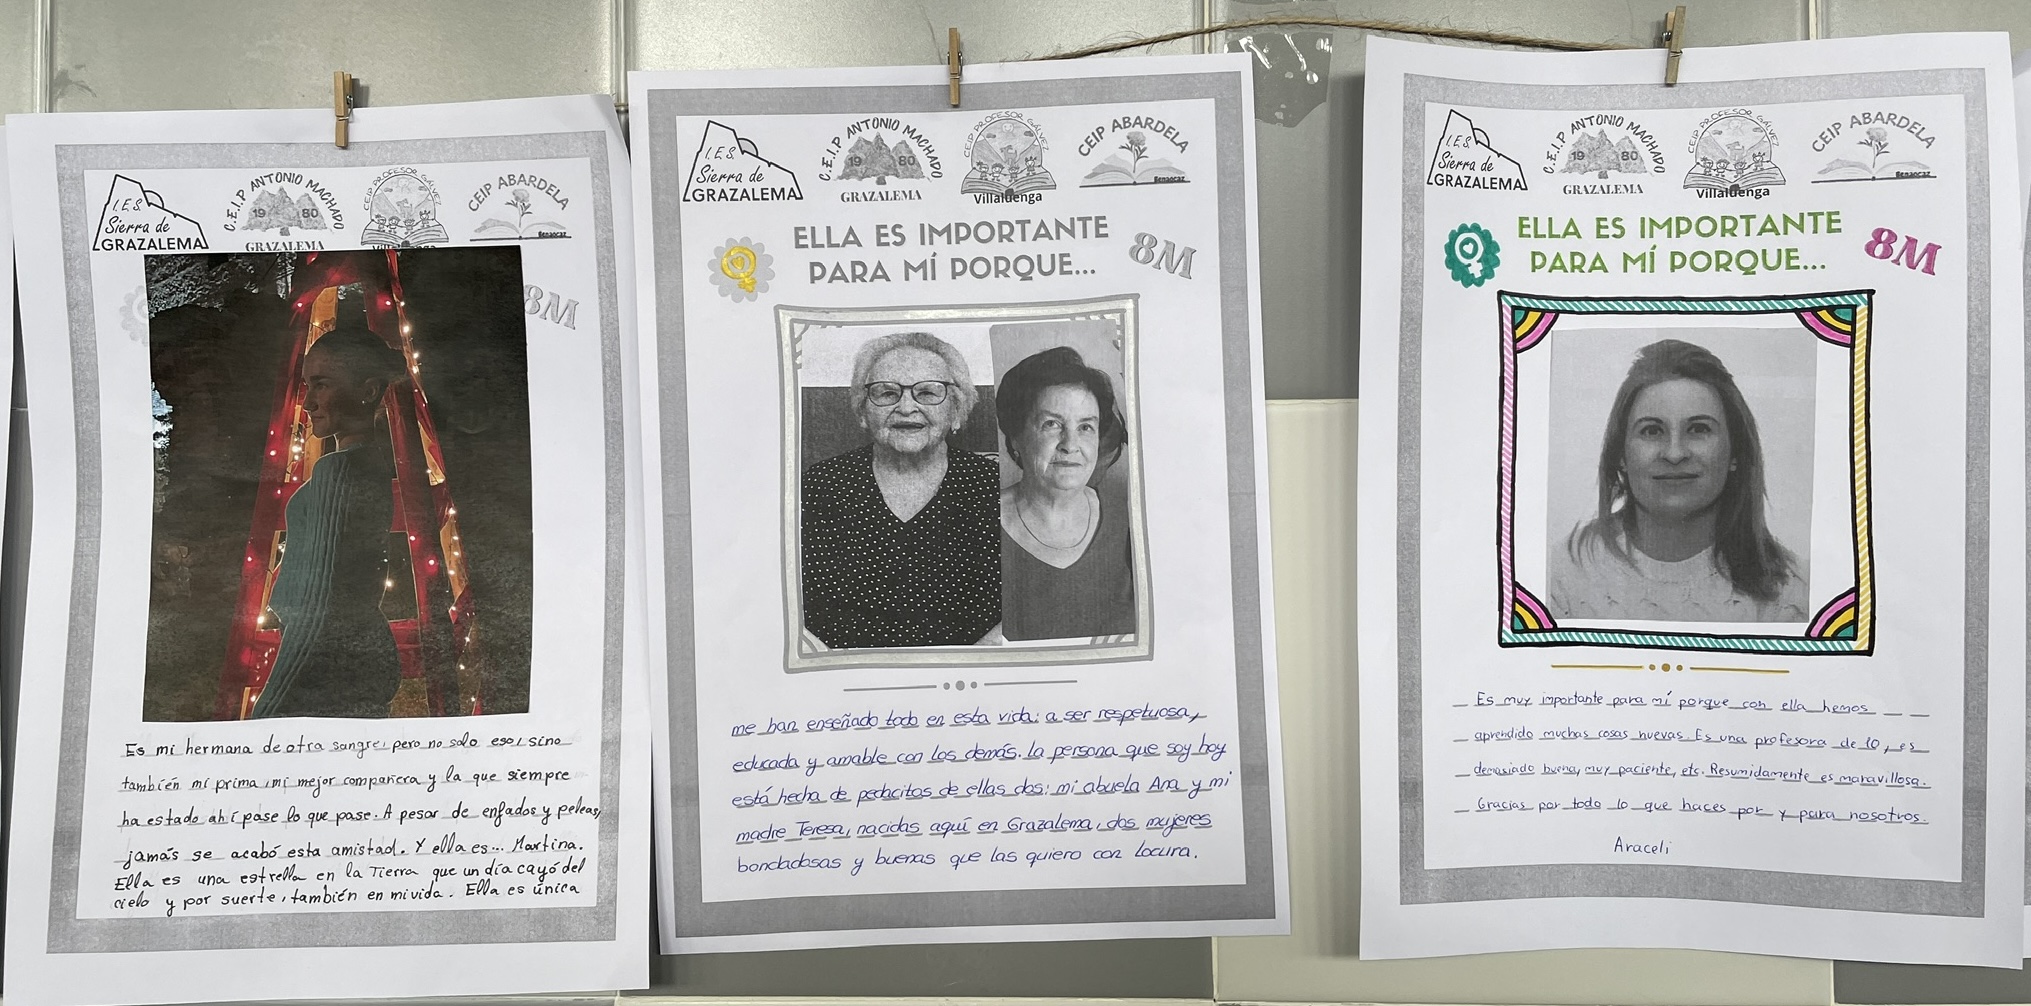 I.E.S.
Sierra de
GRAZALEMA
C.E.I.P ANTONIO MACHADO
1980
GRAZALEMA
CEIP PROFESOR GÁLVEZ
CEIP ABARDELA
Benaocaz
8M
Es mi hermana de otra sangre, pero no solo eso, sino
también mi prima, mi mejor compañera y la que siempre
ha estado ahí pase lo que pase. A pesar de enfados y peleas,
jamás se acabó esta amistad. Y ella es... Martina.
Ella es una estrella en la Tierra que un día cayó del
cielo y por suerte, también en mi vida. Ella es única
I.E.S.
Sierra de
GRAZALEMA
C.E.I.P ANTONIO MACHADO
1980
GRAZALEMA
CEIP PROFESOR GÁLVEZ
Villaluenga
CEIP ABARDELA
Benaocaz
ELLA ES IMPORTANTE
PARA MÍ PORQUE...
8M
me han enseñado todo en esta vida: a ser respetuosa,
educada y amable con los demás. la persona que soy hoy
está hecha de pedacitos de ellas dos: mi abuela Ana y mi
madre Teresa, nacidas aquí en Grazalema, dos mujeres
bondadosas y buenas que las quiero con locura.
I.E.S.
Sierra de
GRAZALEMA
C.E.I.P ANTONIO MACHADO
1980
GRAZALEMA
CEIP PROFESOR GÁLVEZ
Villaluenga
CEIP ABARDELA
Benaocaz
ELLA ES IMPORTANTE
PARA MÍ PORQUE...
8M
Es muy importante para mí porque con ella hemos
aprendido muchas cosas nuevas. Es una profesora de 10, es
demasiado buena, muy paciente, etc. Resumidamente es maravillosa.
Gracias por todo lo que haces por y para nosotros.
Araceli